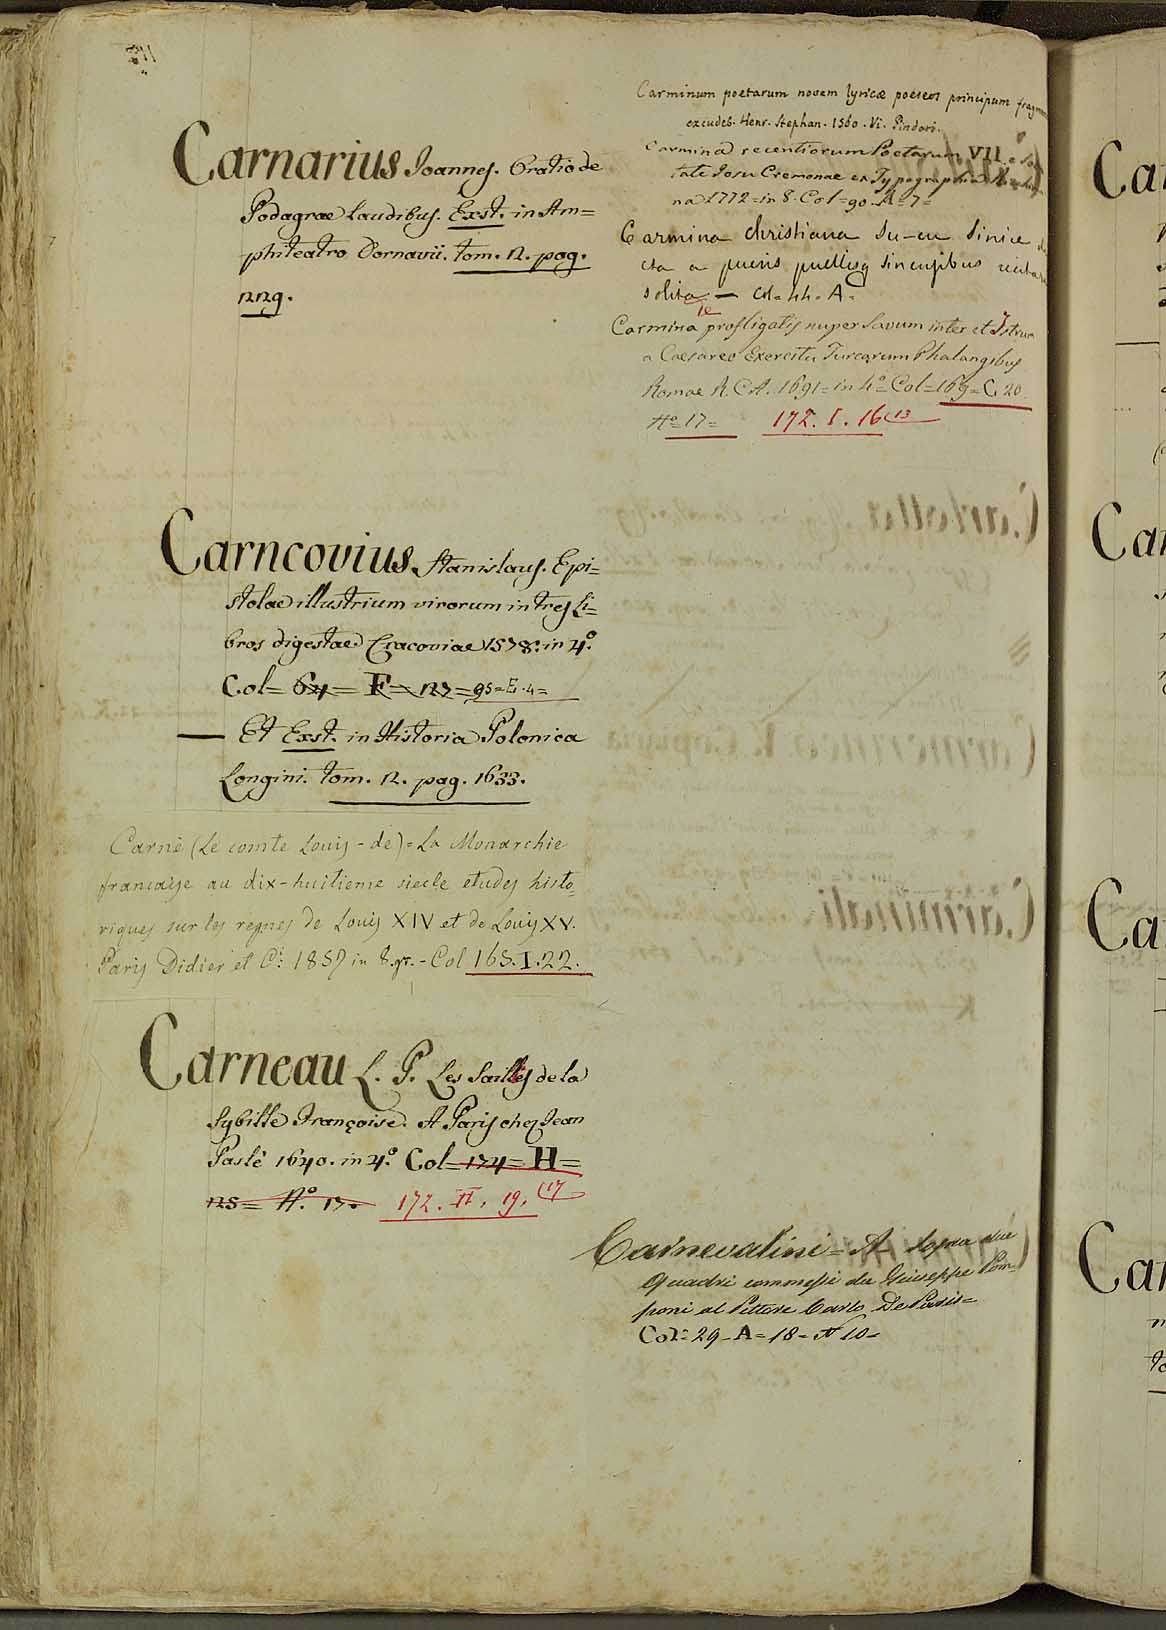 Carnarius Joannes. Oratio de
Podagrae laudibus. Exst. in Am=
phiteatro Dornavii. tom. 2. pag.
229.
Carncovius Stanislaus. Epi=
stolae illustrium virorum in tres Li=
bros digestae Cracoviae 1578. in 4.º
Col= 64= F= 27= 95=E.4=
— Et Exst. in Historia Polonica
Longini. tom. 2. pag. 1633.
Carné (Le comte Louis-de)= La Monarchie
française au dix-huitieme siecle etudes histo=
riques sur les regnes de Louis XIV et de Louis XV.
Paris Didier et C: 1857 in 8.gr. - Col 165.I.22.
Carneau L. P. Les Saillies de la
Sybille Françoise. A Paris chez Jean
Paslé 1640. in 4.º Col= 174= H=
25= N.º 17. 172. II. 19. (17
Carminum poetarum novem lyricæ poeseos principum fragmen
excudeb. Henr. Stephan. 1560. Vi. Pindari.
Carmina recentiorum Poetarum VII e So
tate Jesu Cremonae ex Typographia
na 1772= in 8. Col= 90. A= 7=
Carmina christiana Su-cu Sinice
cta a pueris puellisq Sinensibus recitari
solita — Col. 44. A=
Carmina pro profligatis nuper Savum inter et Istrum
a Caesareo Exercitu Turcarum Phalangibus
Romae R. C. A. 1691= in 4.º= Col= 169= C. 20.
N.º= 17= 172. I. 16 (13
Carnevalini= A sopra due
Quadri commessi da Giuseppe Pom=
poni al Pittore Carlo De Paris=
Col= 29- A= 18- N 10-
Ca
Ca
Ca
Ca